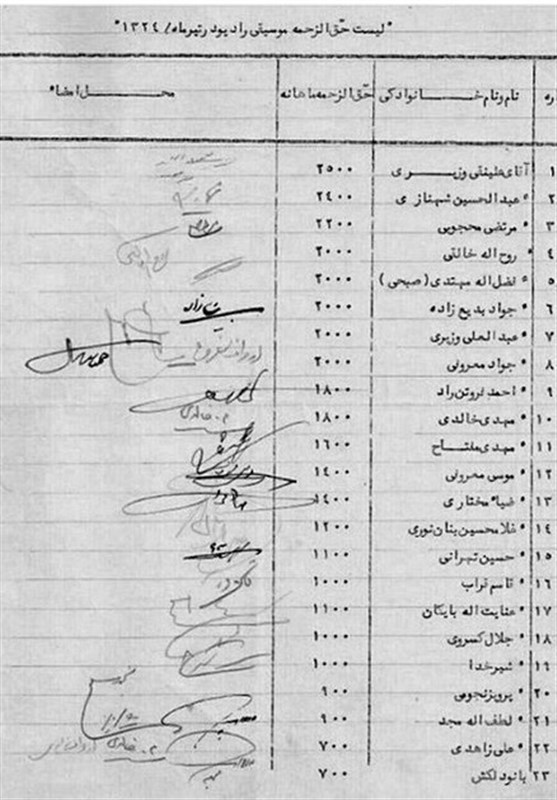 "لیست حق الزحمه موسیقی رادیو در تیرماه / ۱۳۲۴"
ره نام و نام خانوادگی حق الزحمه ماهانه محل امضاء
۱ آقای علینقی وزیری ۲۵۰۰
۲ " عبدالحسین شهنازی ۲۴۰۰
۳ " مرتضی محجوبی ۲۲۰۰
۴ " روح اله خالقی ۲۰۰۰
۵ " فضل اله مهتدی (صبحی) ۲۰۰۰
۶ " جواد بدیع زاده ۲۰۰۰
۷ " عبدالعلی وزیری ۲۰۰۰
۸ " جواد معروفی ۲۰۰۰
۹ " احمد فروتن راد ۱۸۰۰
۱۰ " مهدی خالدی ۱۸۰۰
۱۱ " مهدی مفتاح ۱۶۰۰
۱۲ " موسی معروفی ۱۴۰۰
۱۳ " ضیاء مختاری ۱۴۰۰
۱۴ " غلامحسین بنان نوری ۱۲۰۰
۱۵ " حسین تهرانی ۱۱۰۰
۱۶ " قاسم غراب ۱۰۰۰
۱۷ " عنایت اله بایگان ۱۱۰۰
۱۸ " جلال کسروی ۱۰۰۰
۱۹ " شیرخدا ۱۰۰۰
۲۰ " پرویز نجومی ۹۰۰
۲۱ " لطف اله مجد ۹۰۰
۲۲ " علی زاهدی ۷۰۰
۲۳ بانو دلکش ۷۰۰